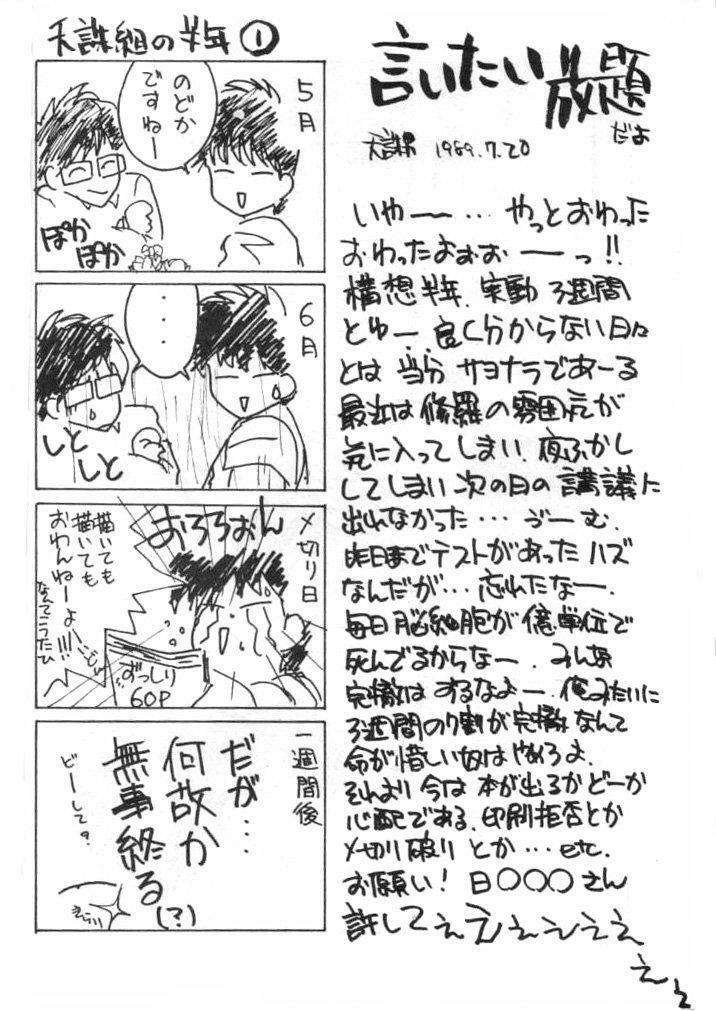 天誅組の半年①
5月
のどか
ですねー
ぽか
ぽか
6月
・・・
しと
しと
〆切り日
おろろぉん
描いても
描いても
おわんねーよ
!!!
なんてこったひ
ずっしり
60P
一週間後
だが…
何故か
無事終る
(?)
どーして?
言いたい放題
だよ
天誅 1989.7.20
いやー… やっとおわった
おわったよぉぉーーっ!!
構想半年、実動3週間
とゆー、良く分からない日々
とは 当分 サヨナラであーる
最近は修羅の雰囲気が
気に入ってしまい、夜ふかし
してしまい次の日の講議に
出れなかった… うーむ、
昨日までテストがあったハズ
なんだが… 忘れたなー、
毎日脳細胞が億単位で
死んでるからなー、みんな
完徹はするなよー、俺みたいに
3週間の7割が完徹なんて
命が惜しい奴はやめろよ、
それより今は本が出るかどーか
心配である、印刷拒否とか
〆切り破りとか… etc.
お願い! 日〇〇〇さん
許してぇえぇぇええぇえぇ